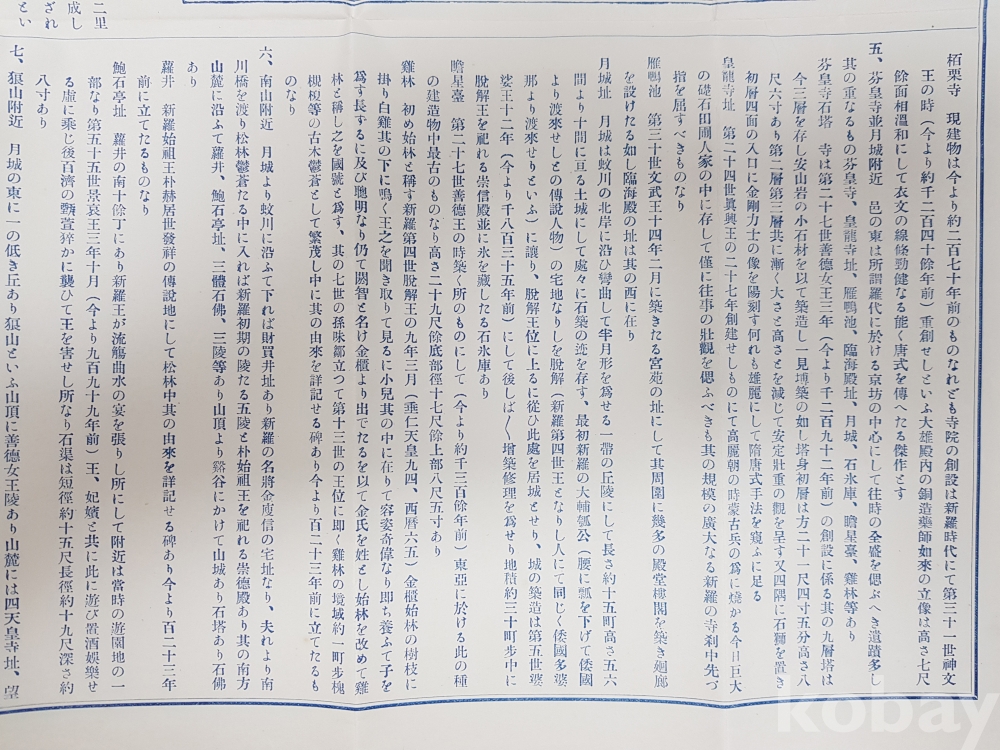 二里
成し
ざれ
とい
栢栗寺　現建物は今より約二百七十年前のものなれども寺院の創設は新羅時代にて第三十一世神文
王の時（今より約千二百四十餘年前）重創せしといふ大雄殿內の銅造藥師如來の立像は高さ七尺
餘面相溫和にして衣文の線條勁健なる能く唐式を傳へたる傑作とす
五、芬皇寺並月城附近　邑の東は所謂羅代に於ける京坊の中心にして往時の全盛を偲ぶへき遺蹟多し
其の重なるもの芬皇寺、皇龍寺址、雁鴨池、臨海殿址、月城、石氷庫、瞻星臺、雞林等あり
芬皇寺石塔　寺は第二十七世善德女王三年（今より千二百九十二年前）の創設に係る其の九層塔は
今三層を存し安山岩の小石材を以て築造し一見塼築の如し塔身初層は方二十一尺四寸五分高さ八
尺六寸あり第二層第三層共に漸く大さと高さとを減じて安定壯重の觀を呈す又四隅に石獅を置き
初層四面の入口に金剛力士の像を陽刻す何れも雄麗にして隋唐式手法を窺ふに足る
皇龍寺址　第二十四世眞興王の二十七年創建せしものにて高麗朝の時蒙古兵の爲に燒かる今日巨大
の礎石田圃人家の中に存して僅に往事の壯觀を偲ふべきも其の規模の廣大なる新羅の寺刹中先づ
指を屈すべきものなり
雁鴨池　第三十世文武王十四年二月に築きたる宮苑の址にして其周圍に幾多の殿堂樓閣を築き廻廊
を設けたる如し臨海殿の址は其の西に在り
月城址　月城は蚊川の北岸に沿ひ彎曲して半月形を爲せる一帶の丘陵にして長さ約十五町高さ五六
間より十間に亘る土城にして處々に石築の迹を存す、最初新羅の大輔瓠公（腰に瓢を下げて倭國
より渡來せしとの傳說人物）の宅地なりしを脫解（新羅第四世王となりし人にて同じく倭國多婆
那より渡來せりといふ）に讓り、脫解王位に上るに從ひ此處を居城とせり、城の築造は第五世婆
娑王十二年（今より千八百三十五年前）にして後しば〱增築修理を爲せり地積約三十町步中に
脫解王を祀れる崇信殿並に氷を藏したる石氷庫あり
瞻星臺　第二十七世善德王の時築く所のものにして（今より約千三百餘年前）東亞に於ける此の種
の建造物中最古のものなり高さ二十九尺餘底部徑十七尺餘上部八尺五寸あり
雞林　初め始林と稱す新羅第四世脫解王の九年三月（垂仁天皇九四、西曆六五）金櫃始林の樹枝に
掛り白雞其の下に鳴く王之を聞き取りて見るに小兒其の中に在りて容姿奇偉なり卽ち養ふて子を
爲す長ずるに及び聰明なり仍て閼智と名け金櫃より出でたるを以て金氏を姓とし始林を改めて雞
林と稱し之を國號と爲す、其の七世の孫味鄒立つて第十三世の王位に卽く雞林の境域約一町步槐
槻榎等の古木鬱蒼として繁茂し中に其の由來を詳記せる碑あり今より百二十三年前に立てたるも
のなり
六、南山附近　月城より蚊川に沿ふて下れば財買井址あり新羅の名將金庾信の宅址なり、夫れより南
川橋を渡り松林鬱蒼たる中に入れば新羅初期の陵たる五陵と朴始祖王を祀れる崇德殿あり其の南方
山麓に沿ふて蘿井、鮑石亭址、三體石佛、三陵等あり山頂より谿谷にかけて山城あり石塔あり石佛
あり
蘿井　新羅始祖王朴赫居世發祥の傳說地にして松林中其の由來を詳記せる碑あり今より百二十三年
前に立てたるものなり
鮑石亭址　蘿井の南十餘丁にあり新羅王が流觴曲水の宴を張りし所にして附近は當時の遊園地の一
部なり第五十五世景哀王三年十月（今より九百九十九年前）王、妃嬪と共に此に遊び置酒娛樂せ
る虛に乘じ後百濟の甄萱猝かに襲ひて王を害せし所なり石渠は短徑約十五尺長徑約十九尺深さ約
八寸あり
七、狼山附近　月城の東に一の低き丘あり狼山といふ山頂に善德女王陵あり山麓には四天皇寺址、望
kobay